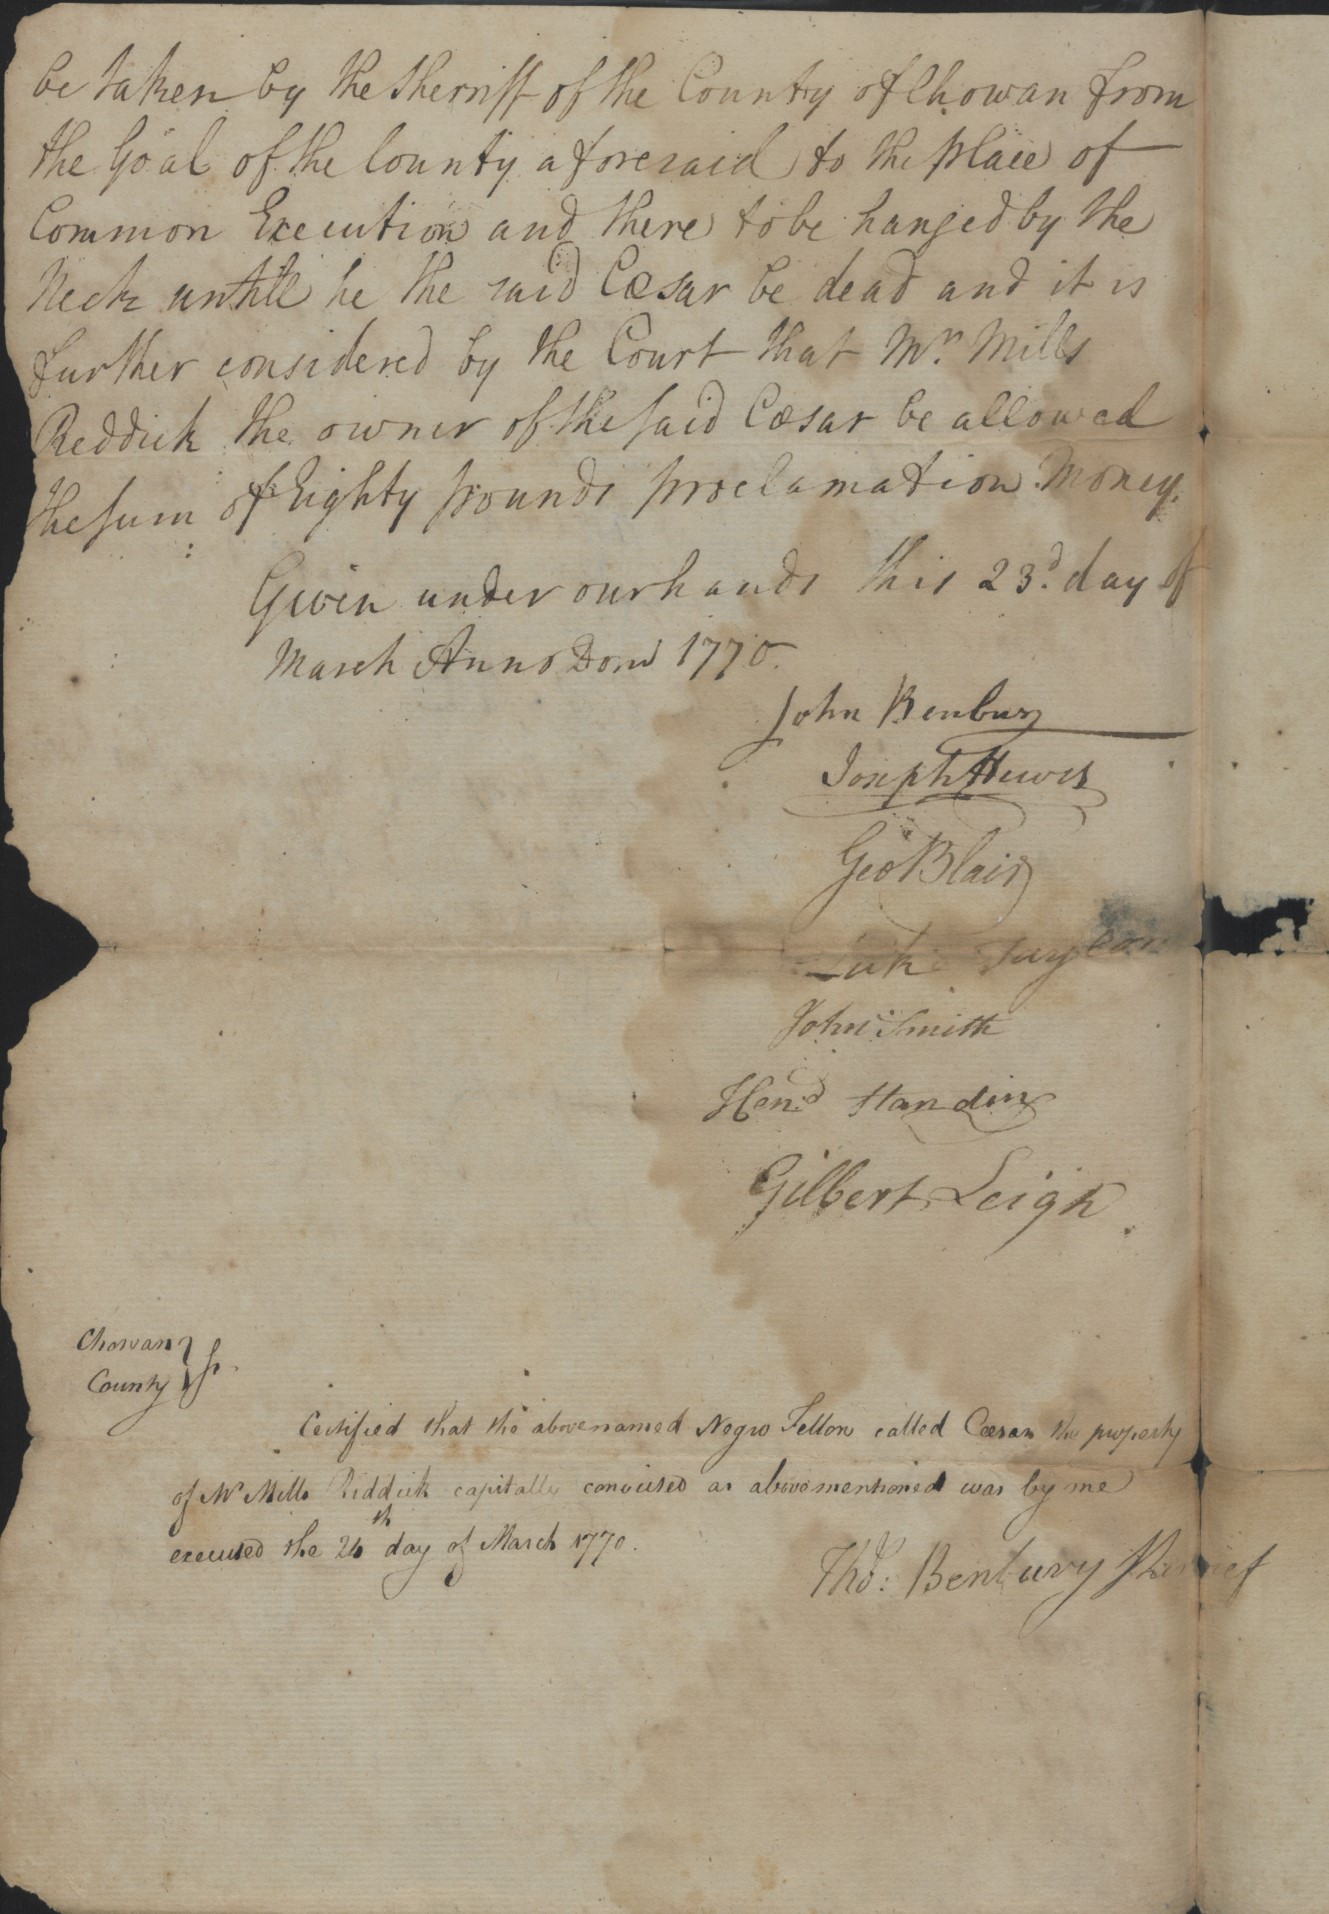 be taken by the Sherriff of the County of Chowan from
the Goal of the County aforesaid to the place of
Common Execution and there to be hanged by the
Neck untill he the said Cæsar be dead and it is
further considered by the Court that Mr. Mills
Reddick the owner of the said Cæsar be allowed
the sum of Eighty pounds proclamation Money.
Given under our hands this 23d. day of
March Anno Dom 1770.
John Benbury
Joseph Hewes
Geo Blair
Luke Sumner
John Smith
Hend. Standin
Gilbert Leigh
Chowan
County } ss.
Certified that the abovenamed Negro Fellon called Cæsar the property
of Mr Mills Riddick capitally convicted as abovementioned was by me
executed the 26th day of March 1770.
Thos: Benbury Sherief